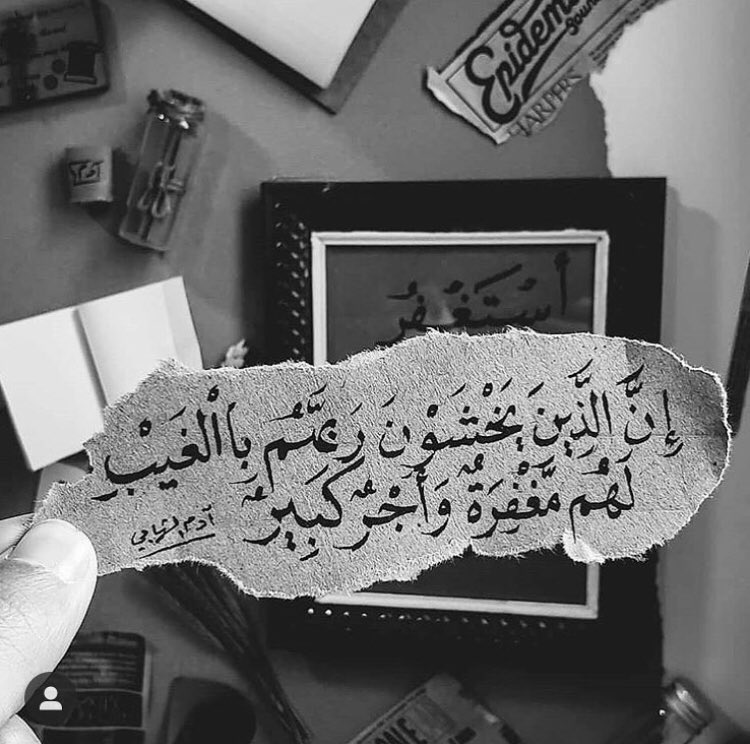 Epidem
Soun
HARPERS
أَسْتَغْفِرُ
إِنَّ الَّذِينَ يَخْشَوْنَ رَبَّهُم بِاالْغَيْبِ
لَهُم مَّغْفِرَةٌ وَأَجْرٌ كَبِيرٌ